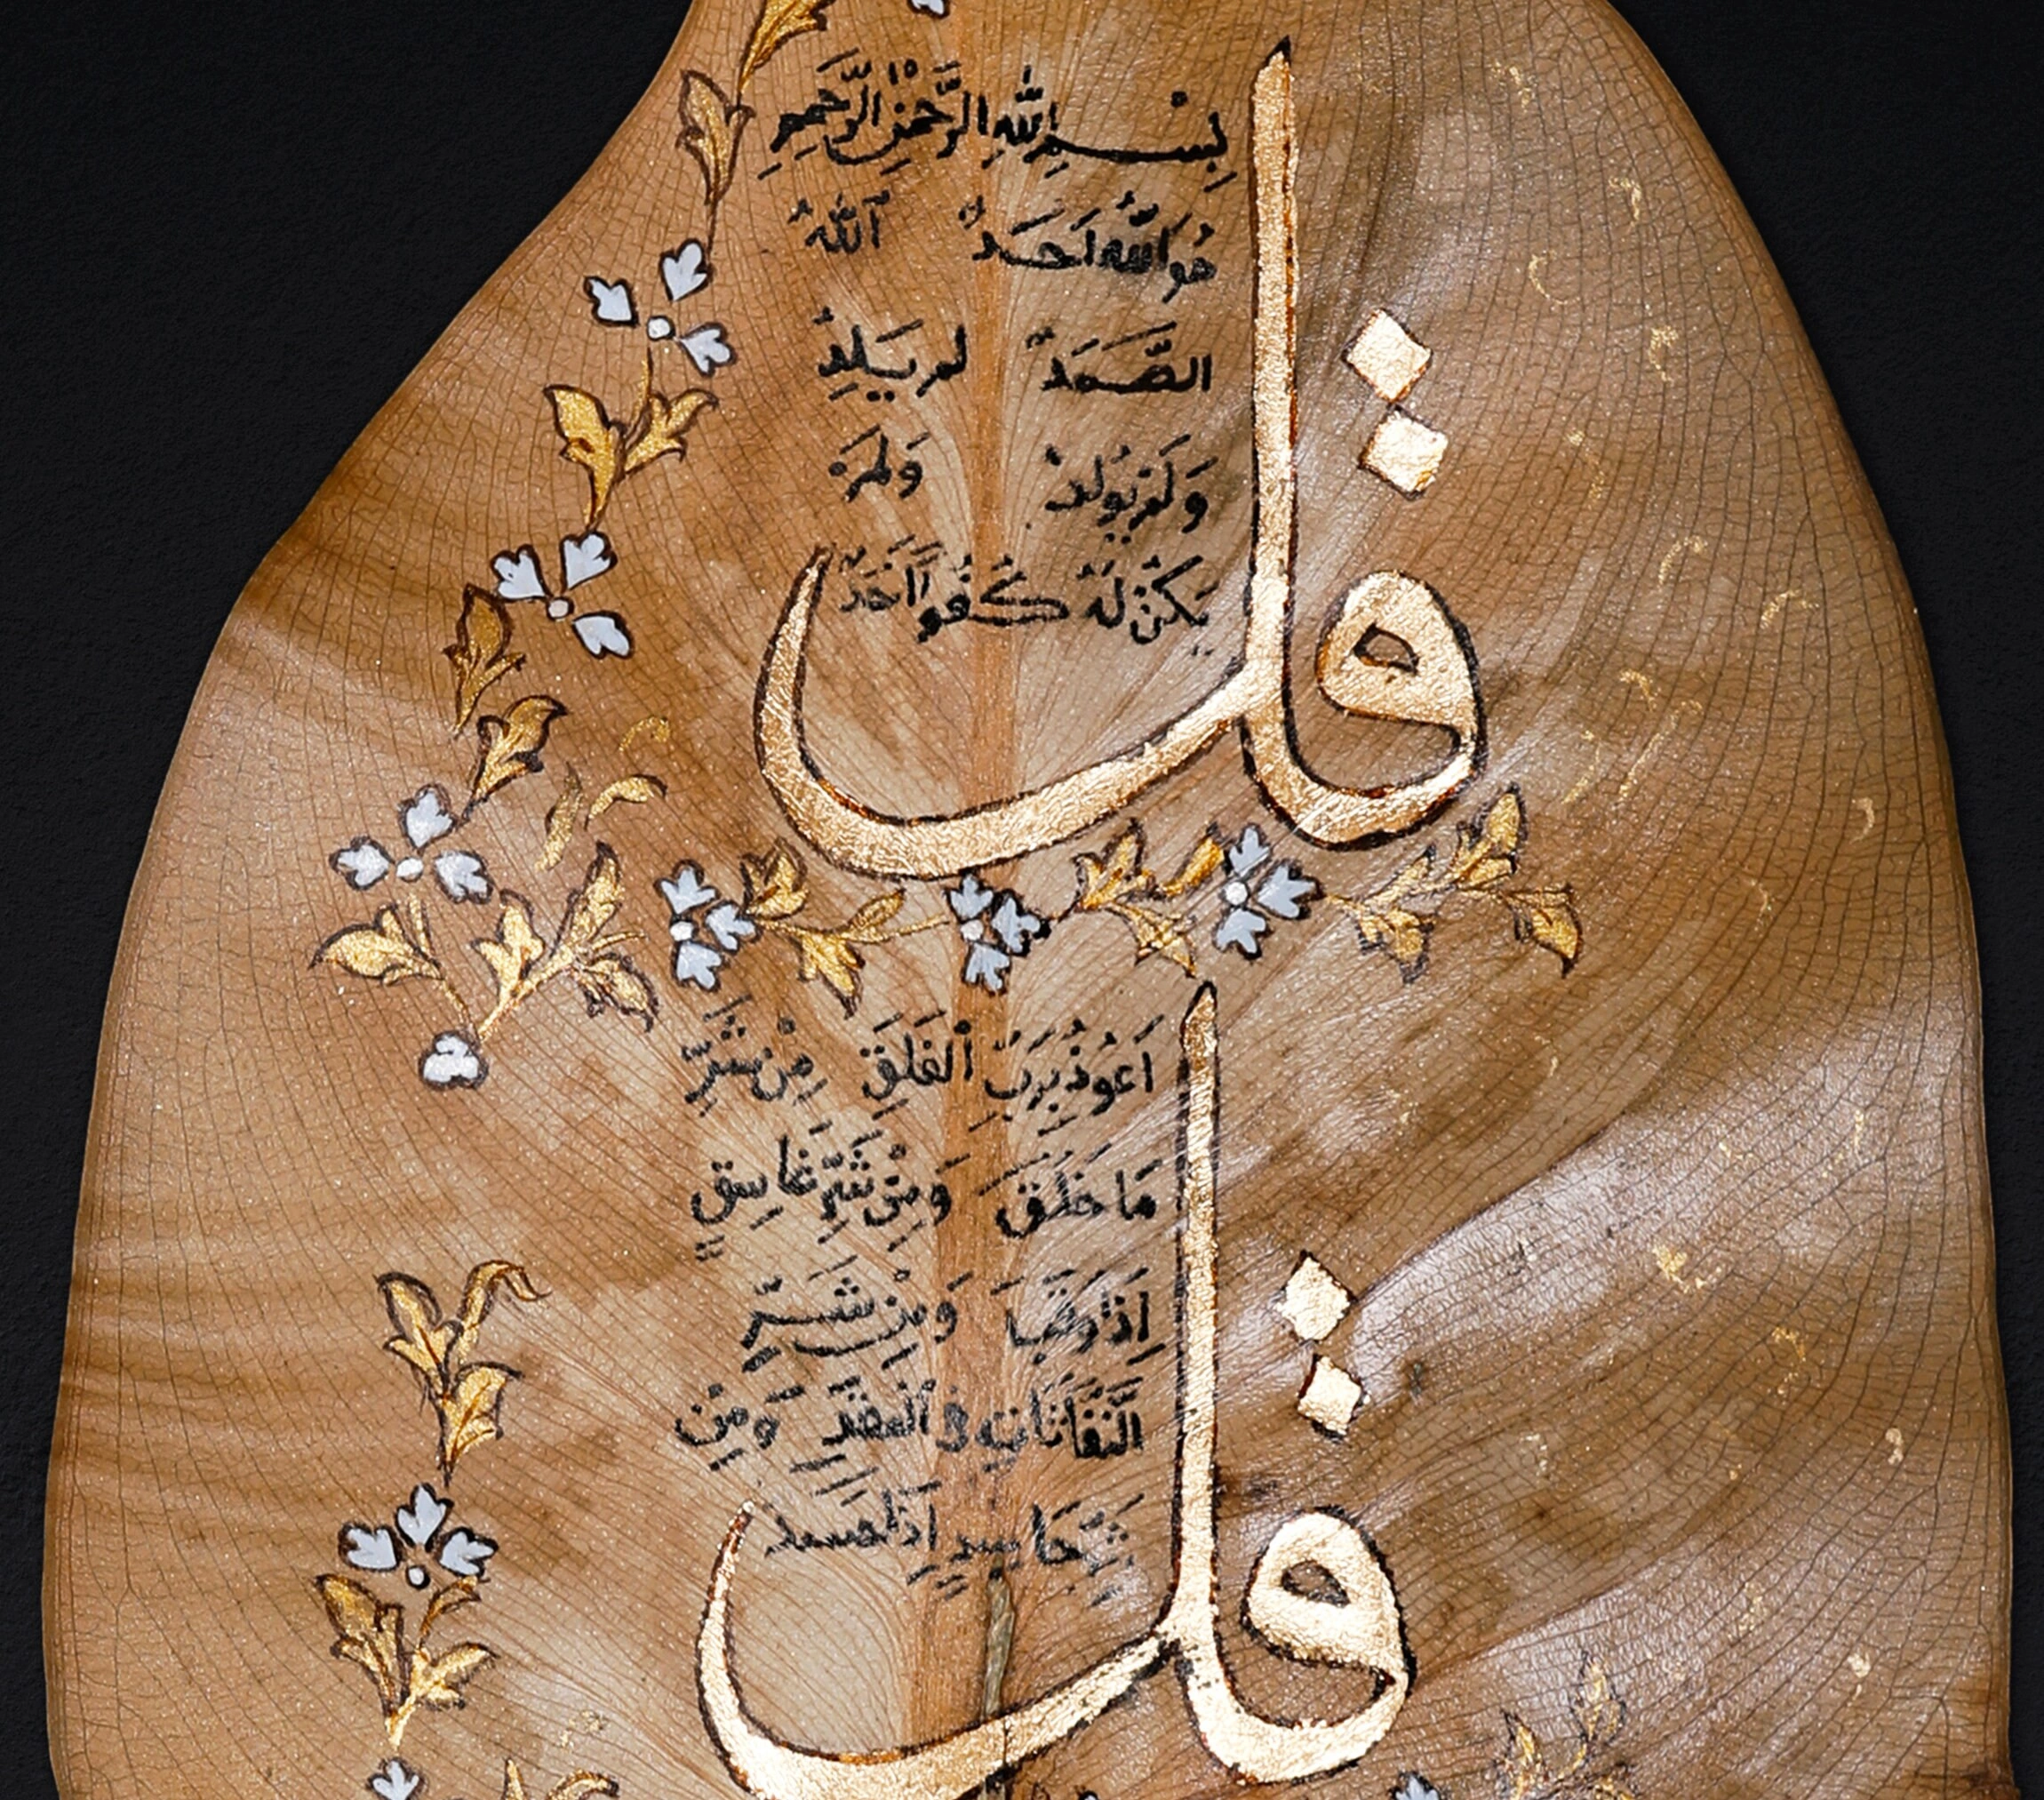 بِسْمِ اللهِ الرَّحْمٰنِ الرَّحِيمِ
قل
هُوَ اللهُ اَحَدٌ اَللهُ
الصَّمَدُ لم يَلِدْ
وَلَمْ يُولَدْ وَلَمْ
يَكُنْ لَهُ كُفُوًا اَحَدٌ
قل
اَعُوذُ بِرَبِّ الْفَلَقِ مِنْ شَرِّ
مَا خَلَقَ وَمِنْ شَرِّ غَاسِقٍ
اِذَا وَقَبَ وَمِنْ شَرِّ
النَّفَّاثَاتِ فِى الْعُقَدِ وَمِنْ
شَرِّ حَاسِدٍ اِذَا حَسَدَ